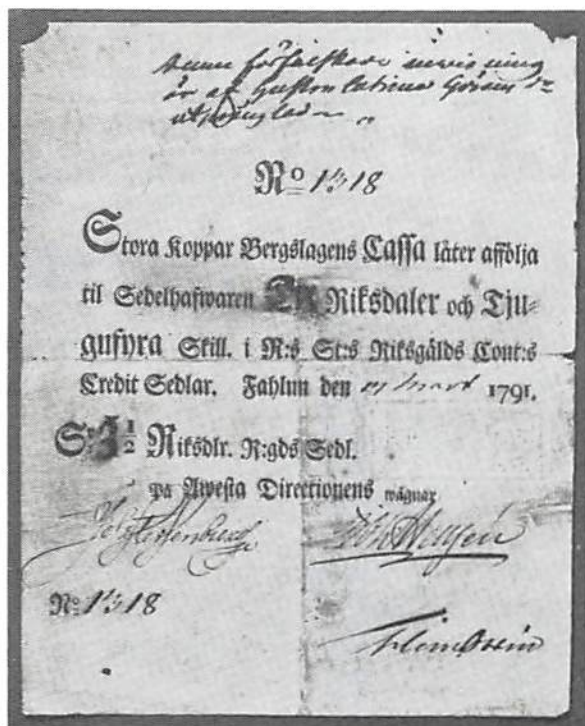 denna förfalskade inwisning
är af
utprånglad
No 1318
Stora Koppar Bergslagens Cassa låter afföllja
til Sedelhafwaren En Riksdaler och Tju=
gufyra Skill. i R:s St:s Riksgälds Cont:s
Credit Sedlar. Fahlun den Mart 1791.
S:r 1 1/2 Riksdlr. R:gds Sedl.
på Awesta Directionens wägnar
No 1318